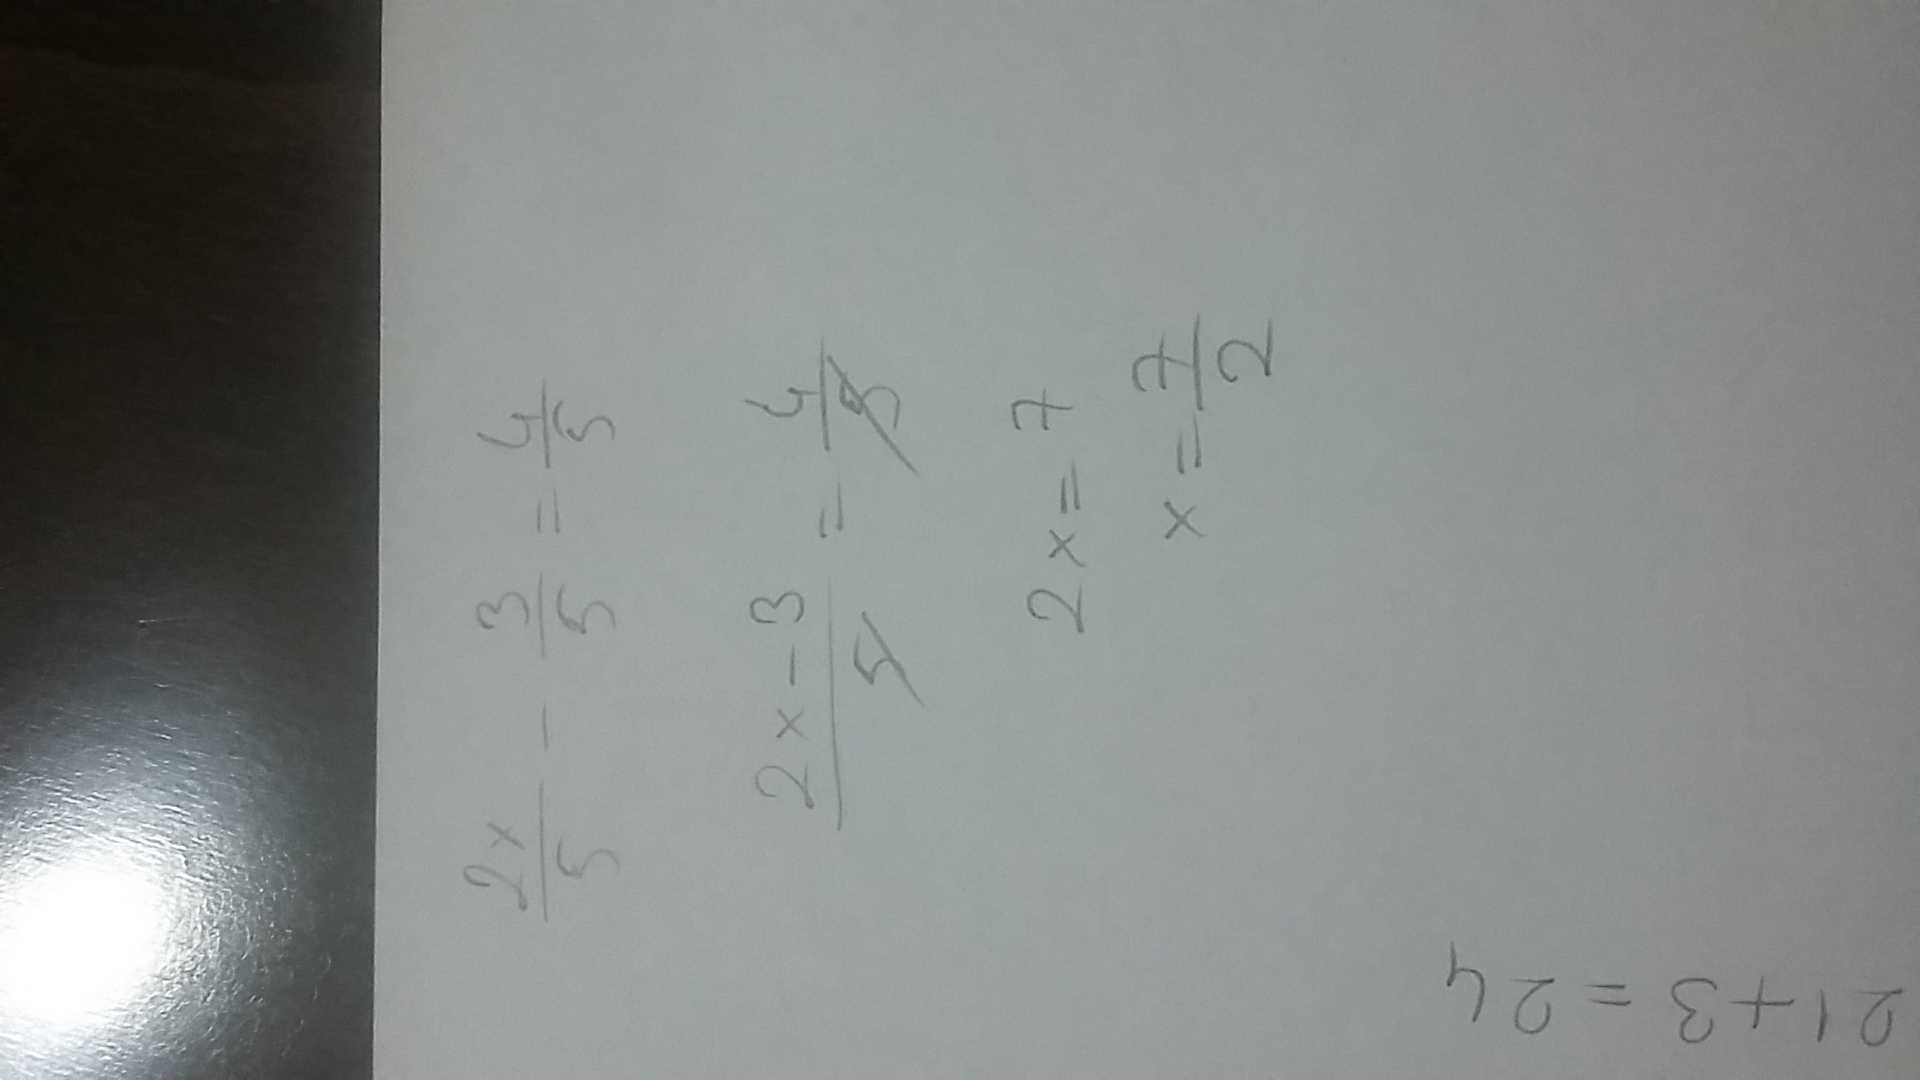 2x/5 - 3/5 = 4/5
2x-3/5 = 4/5
2x = 7
x = 7/2
21+3=24